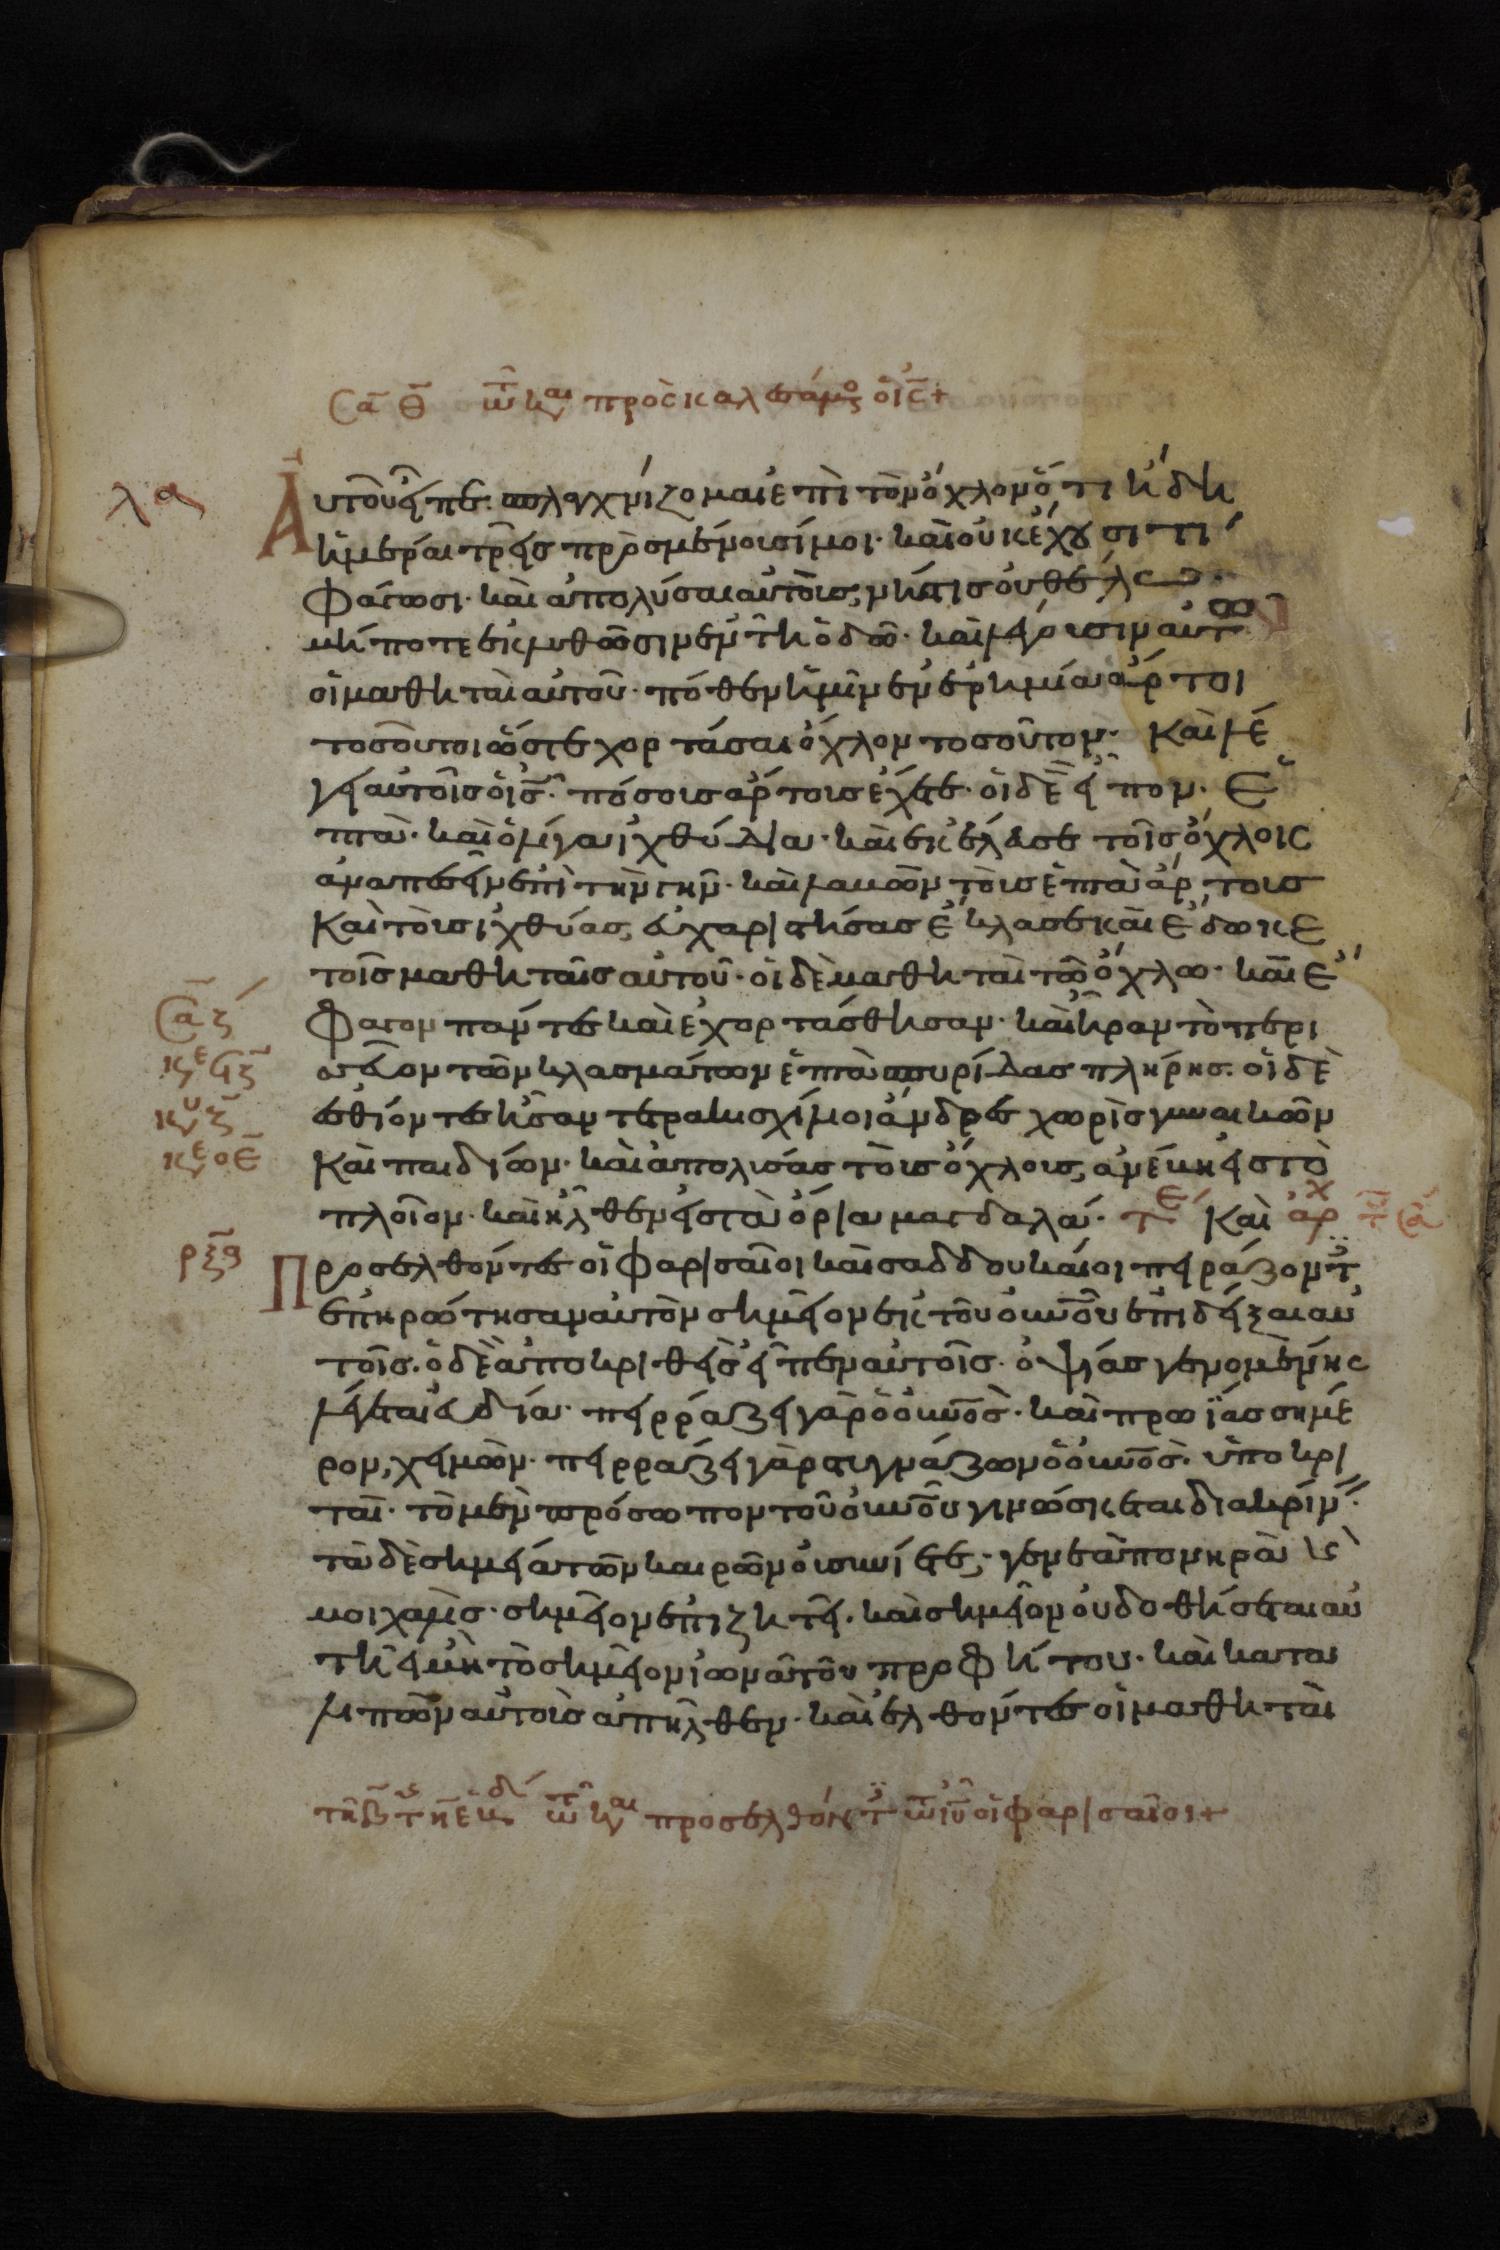 Σα Θ τω και προσκαλεσάμενος ὁ ις +
λα
Αὐτοῦ εἶπε· σπλαγχνίζομαι ἐπὶ τὸν ὄχλον ὅτι ἤδη
ἡμέραι τρεῖς προσμένουσί μοι· καὶ οὐκ ἔχουσι τί
φάγωσι· καὶ ἀπολύσαι αὐτοὺς νήστις οὐ θέλω·
μήποτε ἐκλυθῶσιν ἐν τῆ ὁδῶ· καὶ λέγουσιν αὐτῶ
οἱ μαθηταὶ αὐτοῦ· πόθεν ἡμῖν ἐν ἐρημία ἄρτοι
τοσοῦτοι ὥστε χορτάσαι ὄχλον τοσοῦτον· Καὶ λέ
γει αὐτοῖς ὁ ις· πόσους ἄρτους ἔχετε· οἱ δὲ εἶπον· Ε
πτὰ· καὶ ὀλίγα ἰχθύδια· καὶ ἐκέλευσε τοῖς ὄχλοις
ἀναπεσεῖν ἐπὶ τὴν γῆν· καὶ λαβὼν τοὺς ἑπτὰ ἄρτους
Καὶ τοὺς ἰχθύας, εὐχαριστήσας ἔκλασε καὶ ἔδωκε
τοῖς μαθηταῖς αὐτοῦ· οἱ δὲ μαθηταὶ τῶ ὄχλω· καὶ ἔ
φαγον πάντες καὶ ἐχορτάσθησαν· καὶ ἦραν τὸ περι
σεῦον τῶν κλασμάτων ἑπτὰ σπυρίδας πλήρης· οἱ δὲ
ἐσθίοντες ἦσαν τετρακισχίλιοι ἄνδρες χωρὶς γυναικῶν
Καὶ παιδίων· καὶ ἀπολύσας τοὺς ὄχλους, ἀνέβη εἰς τὸ
πλοῖον· καὶ ἦλθεν εἰς τὰ ὅρια μαγδαλά· τε Καὶ αρχ
ρξα
Προσελθόντες οἱ Φαρισαῖοι καὶ σαδδουκαῖοι πειράζοντ
ἐπηρώτησαν αὐτὸν σημεῖον ἐκ τοῦ οὐνοῦ ἐπιδεῖξαι αὐ
τοῖς· ὁ δὲ ἀποκριθεὶς εἶπεν αὐτοῖς· ὀψίας γενομένης
λέγεται εὐδία· πειρράζει γὰρ ὁ οὐνος· καὶ πρωΐας σήμε
ρον, χειμών· πειρράζει γὰρ στυγνάζων ὁ οὐνος· ὑποκρι
ταὶ· τὸ μὲν πρόσωπον τοῦ οὐνοῦ γινώσκεται διακρίν·
τὰ δὲ σημεῖα τῶν καιρῶν οὐ συνίετε· γενεὰ πονηρὰ κ
μοιχαλὶς· σημεῖον ἐπιζητεῖ· καὶ σημεῖον οὐ δοθήσεται αὐ
τῆ εἰ μὴ τὸ σημεῖον ἰωνᾶ τοῦ προφήτου· καὶ κατα
λιπὼν αὐτοὺς ἀπῆλθεν· καὶ ἐλθόντες οἱ μαθηταὶ
τω και προσελθόντ τω ιυ οἱ φαρισαῖοι +